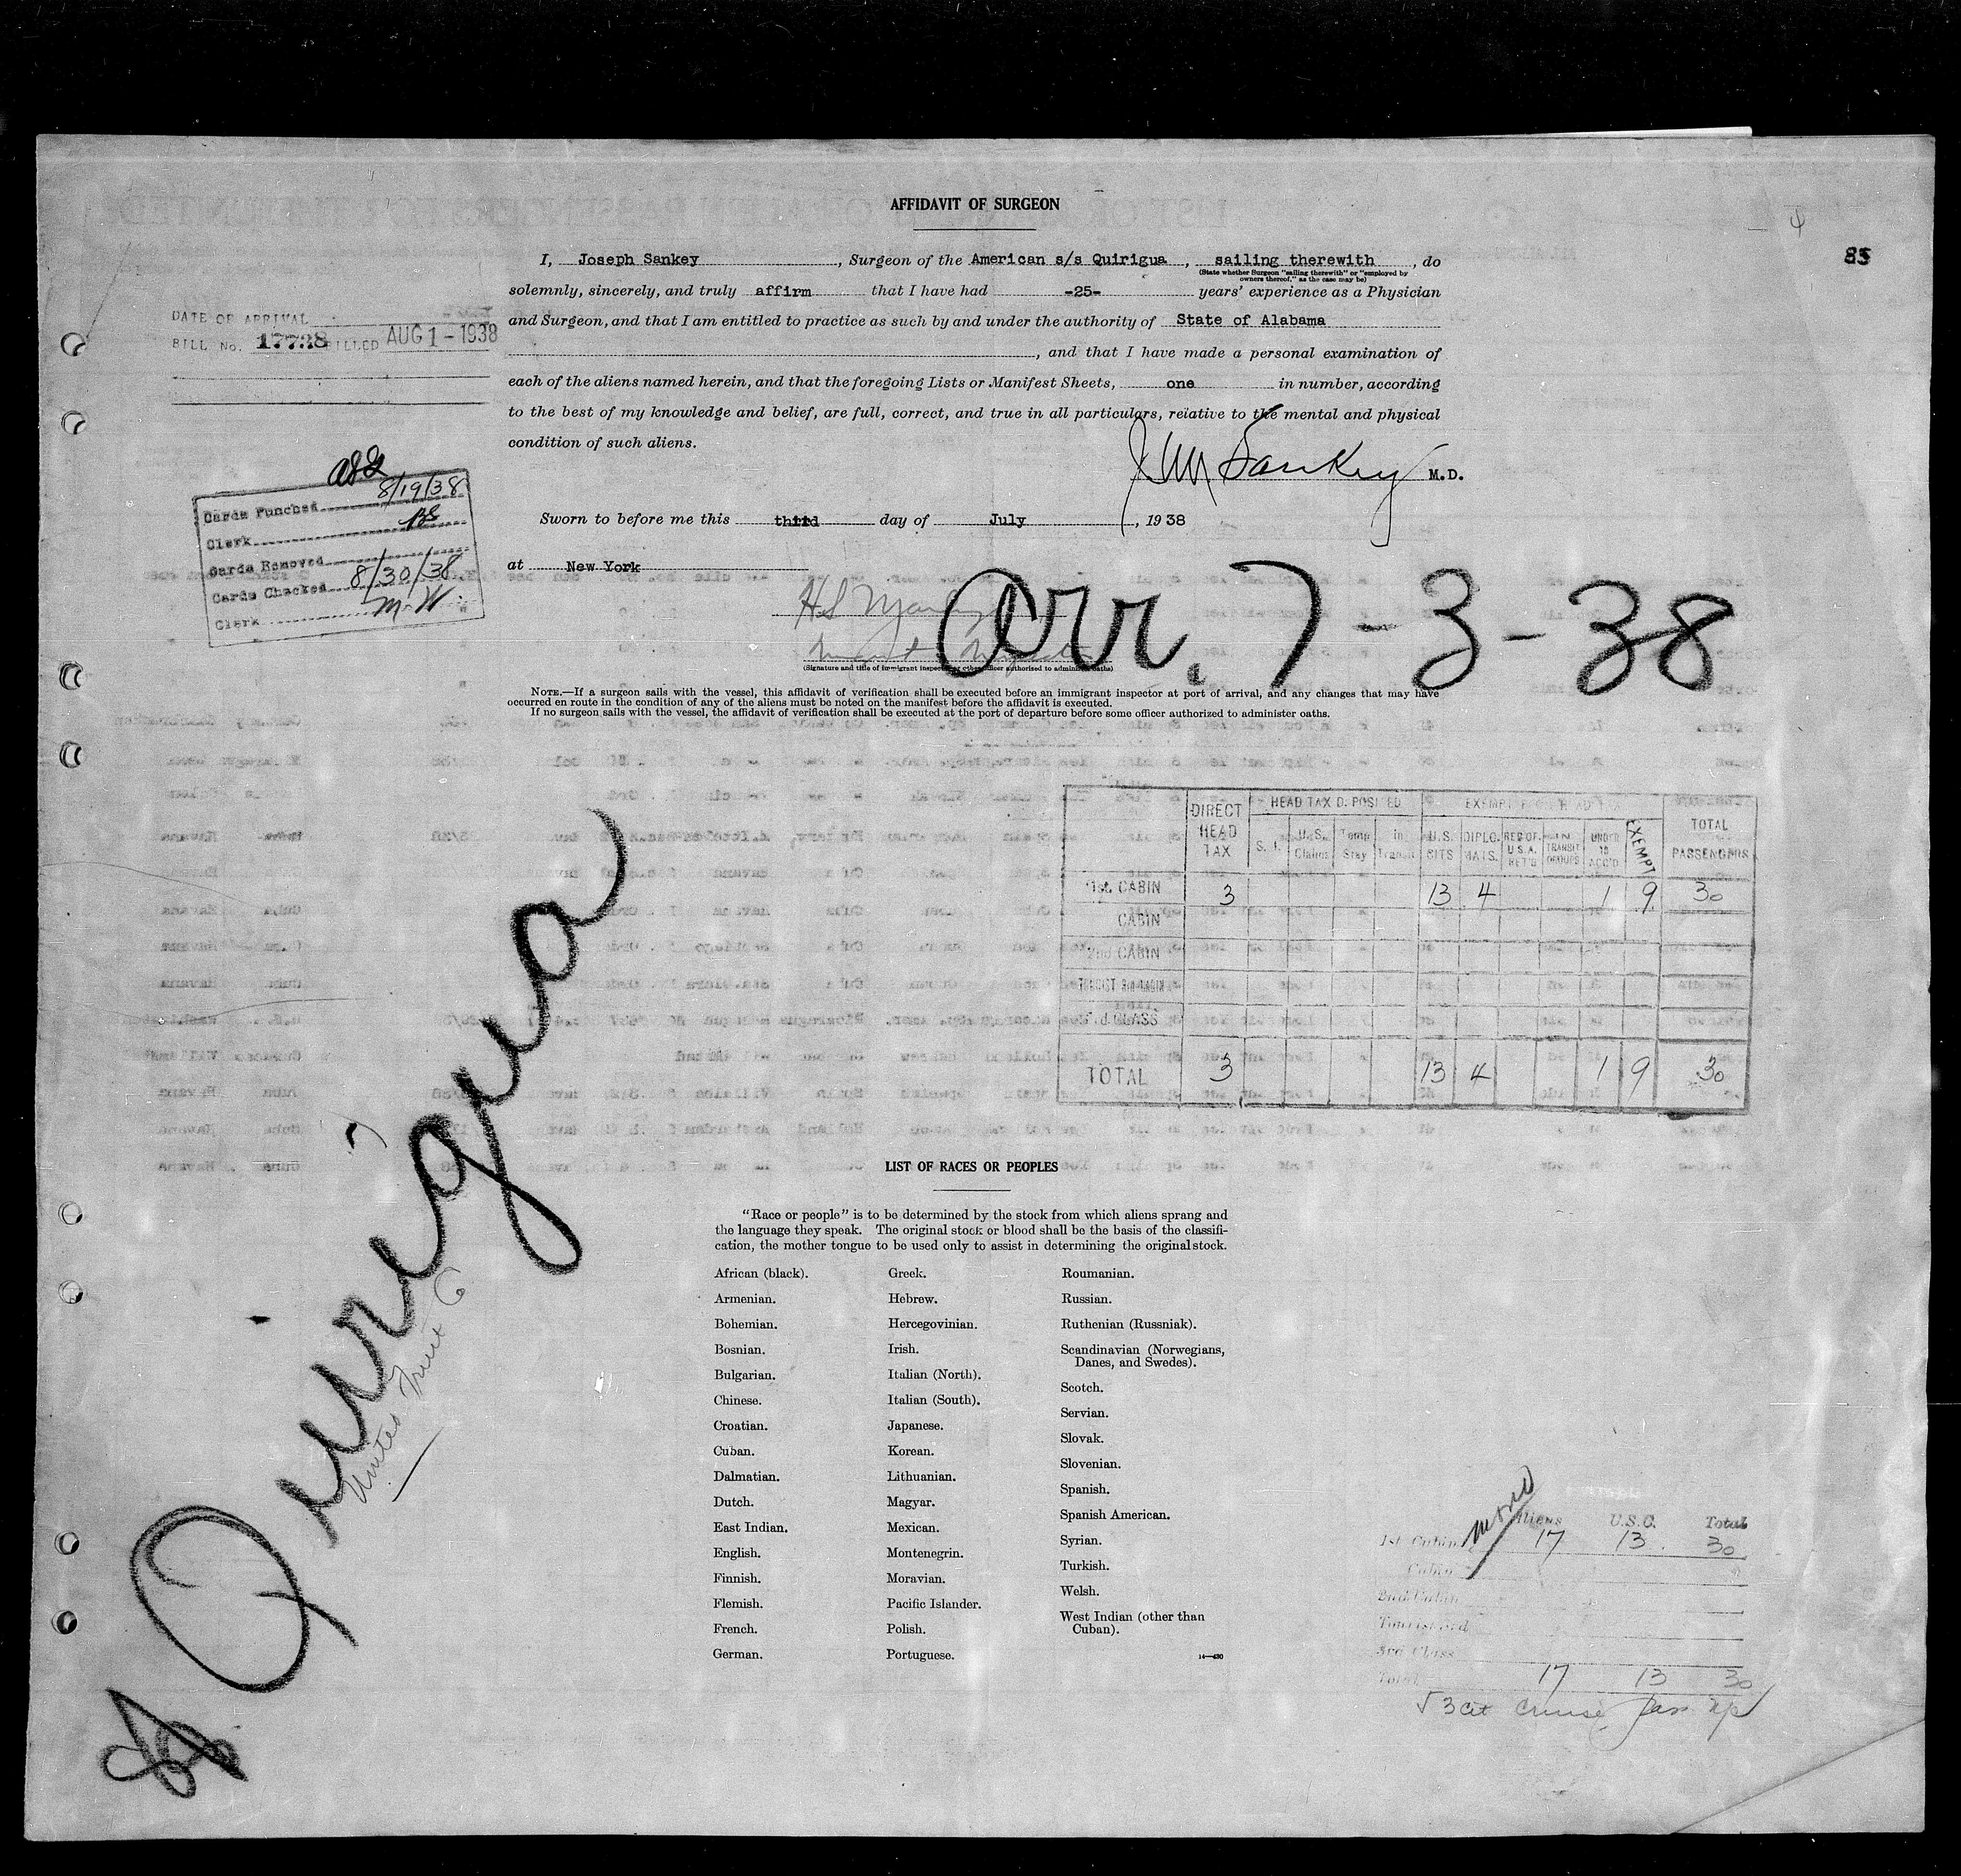 AFFIDAVIT OF SURGEON
85
I, Joseph Sankey, Surgeon of the American s/s Quirigua, sailing therewith, do
(State whether Surgeon "sailing therewith" or "employed by
owners thereof," as the case may be)
solemnly, sincerely, and truly affirm that I have had -25- years' experience as a Physician
and Surgeon, and that I am entitled to practice as such by and under the authority of State of Alabama
, and that I have made a personal examination of
each of the aliens named herein, and that the foregoing Lists or Manifest Sheets, one in number, according
to the best of my knowledge and belief, are full, correct, and true in all particulars, relative to the mental and physical
condition of such aliens.
Sankey M.D.
DATE OF ARRIVAL
BILL No. 17728 BILLED AUG 1 - 1938
Cards Punched 8/19/38
Clerk
Cards Removed
Cards Checked 8/30/38
Clerk M.W.
Sworn to before me this third day of July, 1938
at New York
Arr. 7-3-38
(Signature and title of immigrant inspector or other officer authorized to administer oaths)
NOTE.—If a surgeon sails with the vessel, this affidavit of verification shall be executed before an immigrant inspector at port of arrival, and any changes that may have
occurred en route in the condition of any of the aliens must be noted on the manifest before the affidavit is executed.
If no surgeon sails with the vessel, the affidavit of verification shall be executed at the port of departure before some officer authorized to administer oaths.
DIRECT HEAD TAX
HEAD TAX DEPOSITED
EXEMPT FROM HEAD TAX
TOTAL PASSENGERS
S. I. U.S. Claims Temp Stay In Transit U.S. CITS DIPLO. MATS. RES OF U.S.A. RET'G IN TRANSIT GROUPS UNDER 16 ACC'D EXEMPT
1st. CABIN 3 13 4 1 9 30
CABIN
2nd CABIN
TOURIST 3rd CABIN
3d CLASS
TOTAL 3 13 4 1 9 30
Quirigua
United Fruit Co
LIST OF RACES OR PEOPLES
"Race or people" is to be determined by the stock from which aliens sprang and
the language they speak. The original stock or blood shall be the basis of the classifi-
cation, the mother tongue to be used only to assist in determining the original stock.
African (black).
Armenian.
Bohemian.
Bosnian.
Bulgarian.
Chinese.
Croatian.
Cuban.
Dalmatian.
Dutch.
East Indian.
English.
Finnish.
Flemish.
French.
German.
Greek.
Hebrew.
Hercegovinian.
Irish.
Italian (North).
Italian (South).
Japanese.
Korean.
Lithuanian.
Magyar.
Mexican.
Montenegrin.
Moravian.
Pacific Islander.
Polish.
Portuguese.
Roumanian.
Russian.
Ruthenian (Russniak).
Scandinavian (Norwegians,
Danes, and Swedes).
Scotch.
Servian.
Slovak.
Slovenian.
Spanish.
Spanish American.
Syrian.
Turkish.
Welsh.
West Indian (other than
Cuban).
14—430
Aliens U.S.C. Total
1st Cabin 17 13 30
Cabin
2nd Cabin
Tourist 3rd
3rd Class
Total 17 13 30